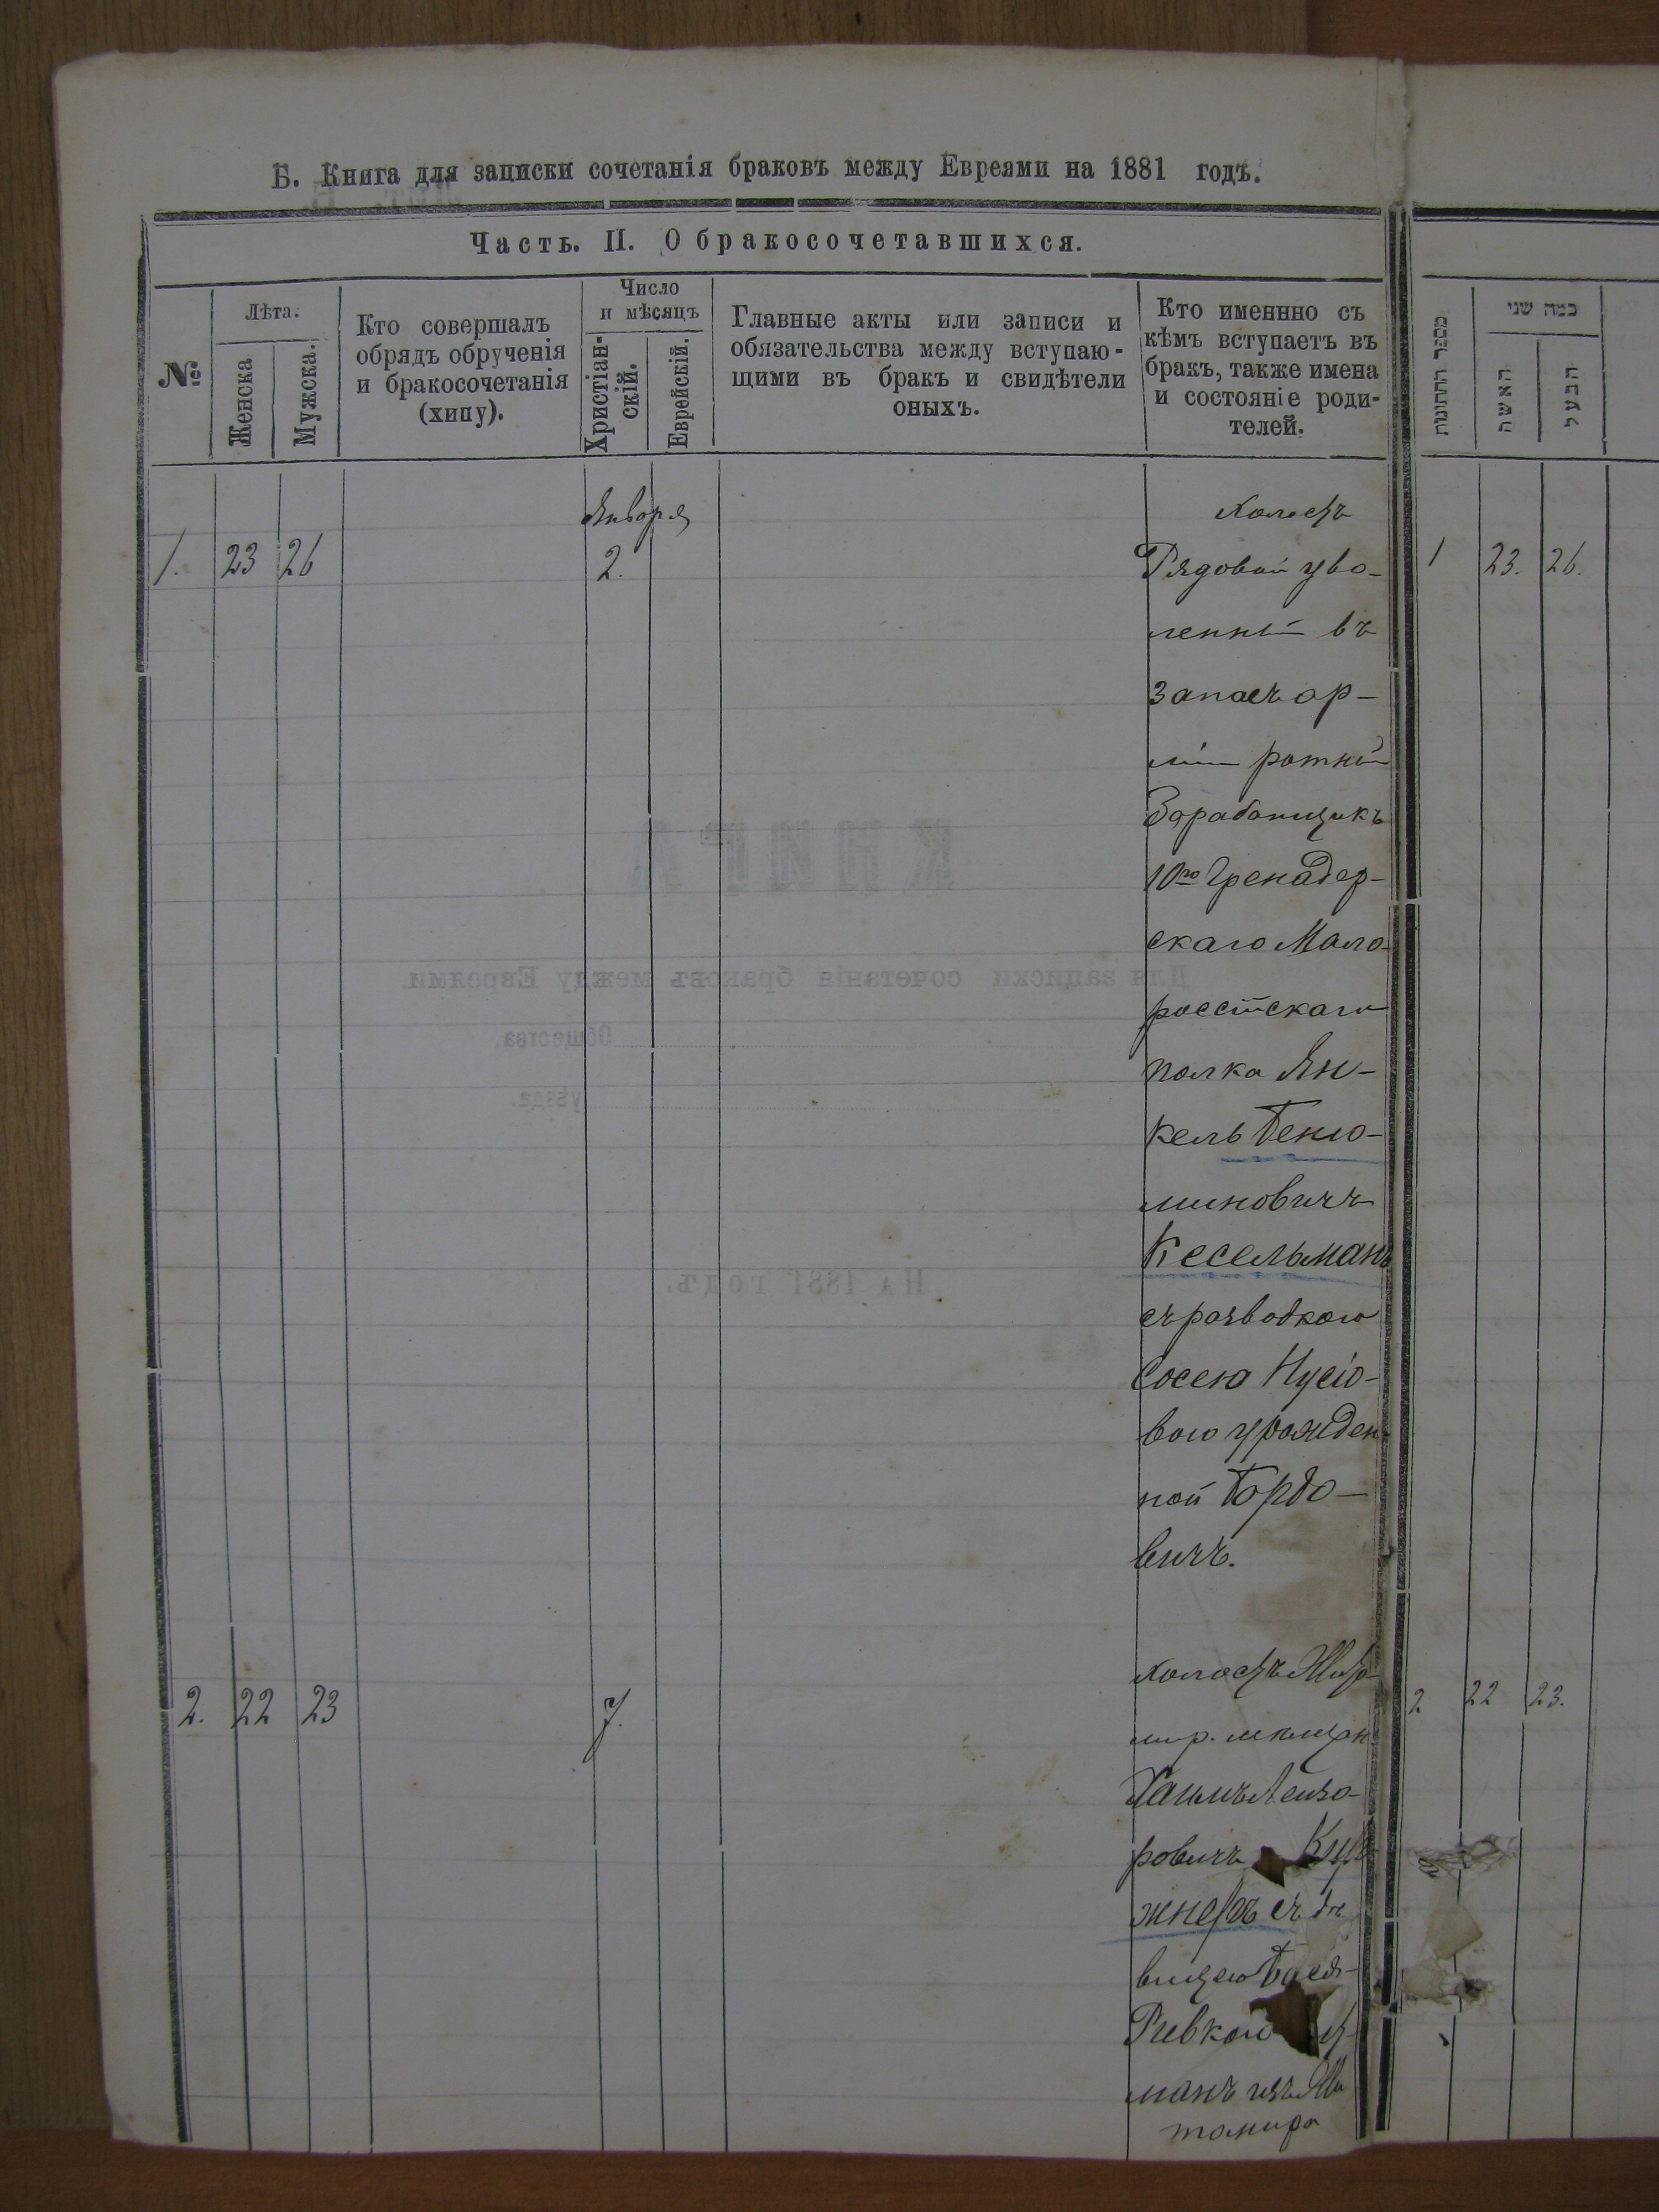 Б. Книга для записки сочетанія браковъ между Евреями на 1881 годъ.
Часть. II. О бракосочетавшихся.
№
Лѣта.
Женска
Мужска.
Кто совершалъ
обрядъ обрученія
и бракосочетанія
(хипу).
Число
и мѣсяцъ
Христіан-
скій.
Еврейскій.
Главные акты или записи и
обязательства между вступаю-
щими въ бракъ и свидѣтели
оныхъ.
Кто именнно съ
кѣмъ вступаетъ въ
бракъ, также имена
и состояніе роди-
телей.
מספר החתונות
כמה שני
האשה
הבעל
Января
холостъ
1. 23 26 2. Рядовой уво- 1 23. 26.
ленный въ
запасъ ар-
міи ротный
Барабанщикъ
10го Гренадер-
скаго Мало-
россійскаго
полка Ян-
кель Беню-
миновичъ
Кесельманъ
съ разводкою
Сосею Нусіо-
вою урожден
ной Бордо-
вичъ.
холостъ
2. 22 23 7. 2 22 23.
мир. мещан
Хаимъ Лейзо-
ровичъ
жнеръ съ дѣ
вицею Бася-
Ривкою
манъ изъ Жи
томира
КНИГА
Для записки сочетанія браковъ между Евреями.
Общества.
уѣзда.
На 1881 годъ.